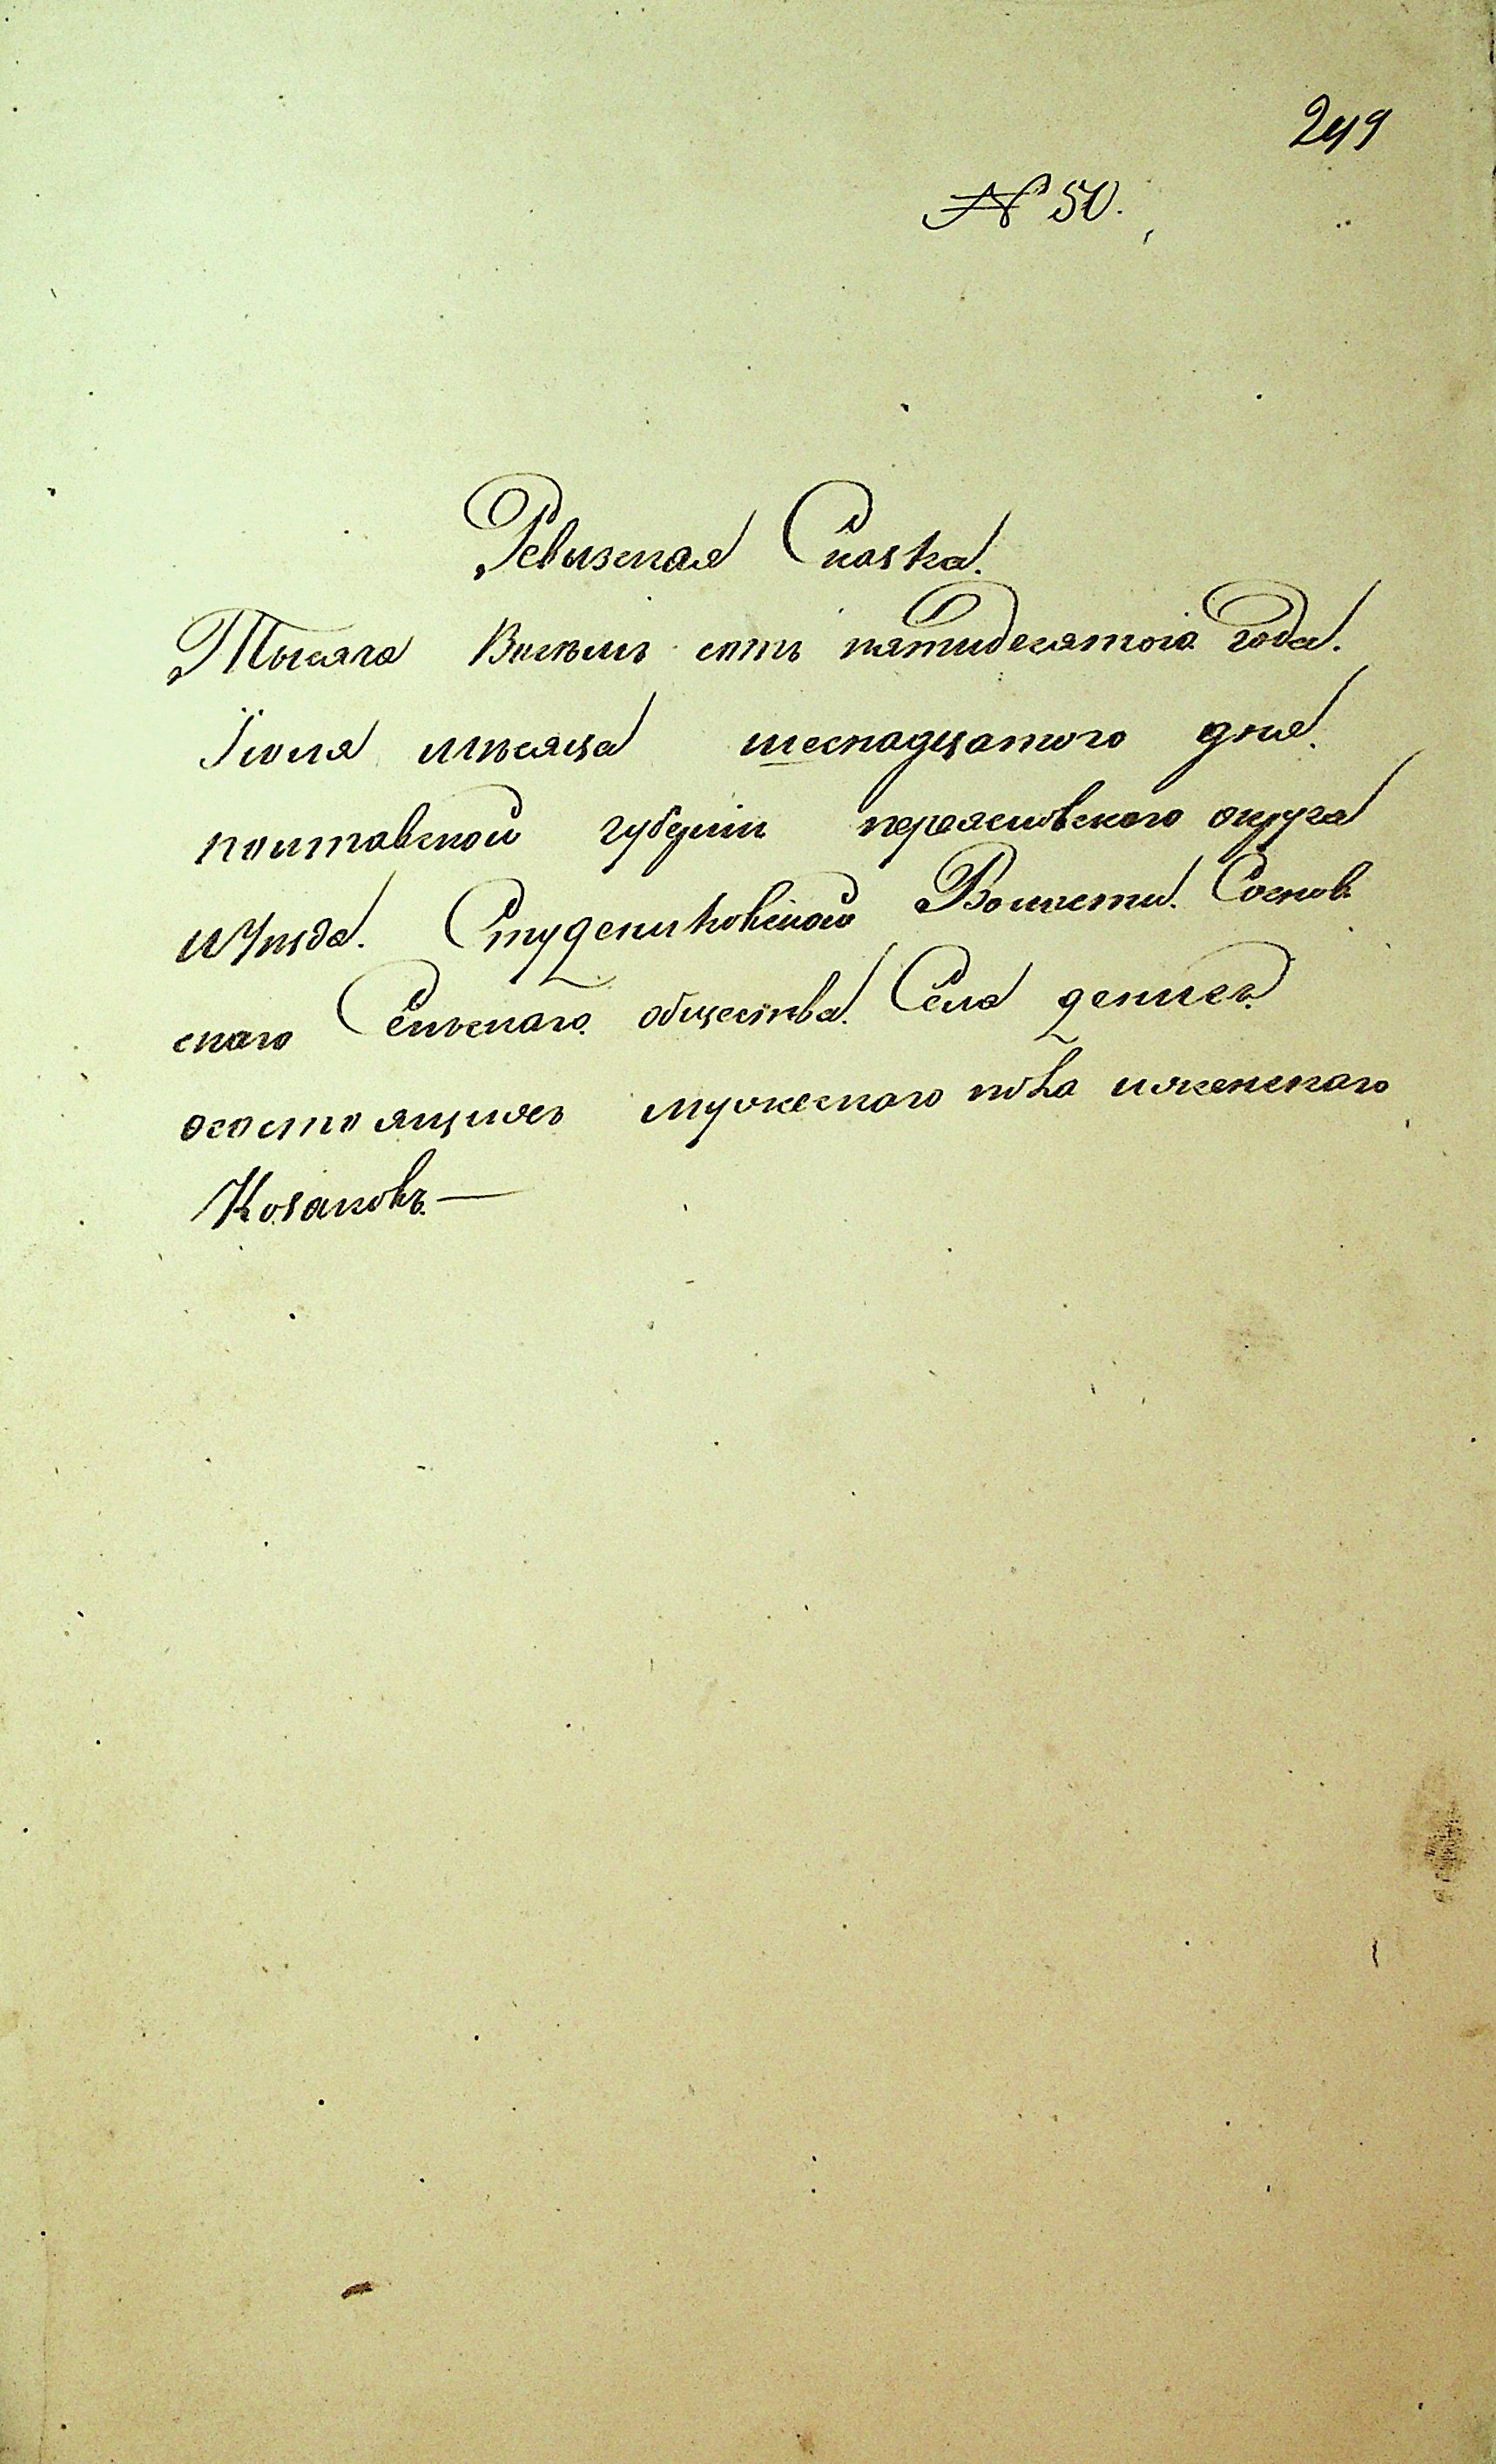 249
№ 50.
Ревизская Сказка.
Тысяча Восемь сотъ пятидесятого года.
Июля мѣсяца шеснадцатого дня.
полтавской губерніи переясловского округа
и Уѣзда. Студениковской Волости. Соснов
скаго Селъскаго общества. Села денисъ
осостоящихъ мужескаго пола иженскаго
Козаковъ.—